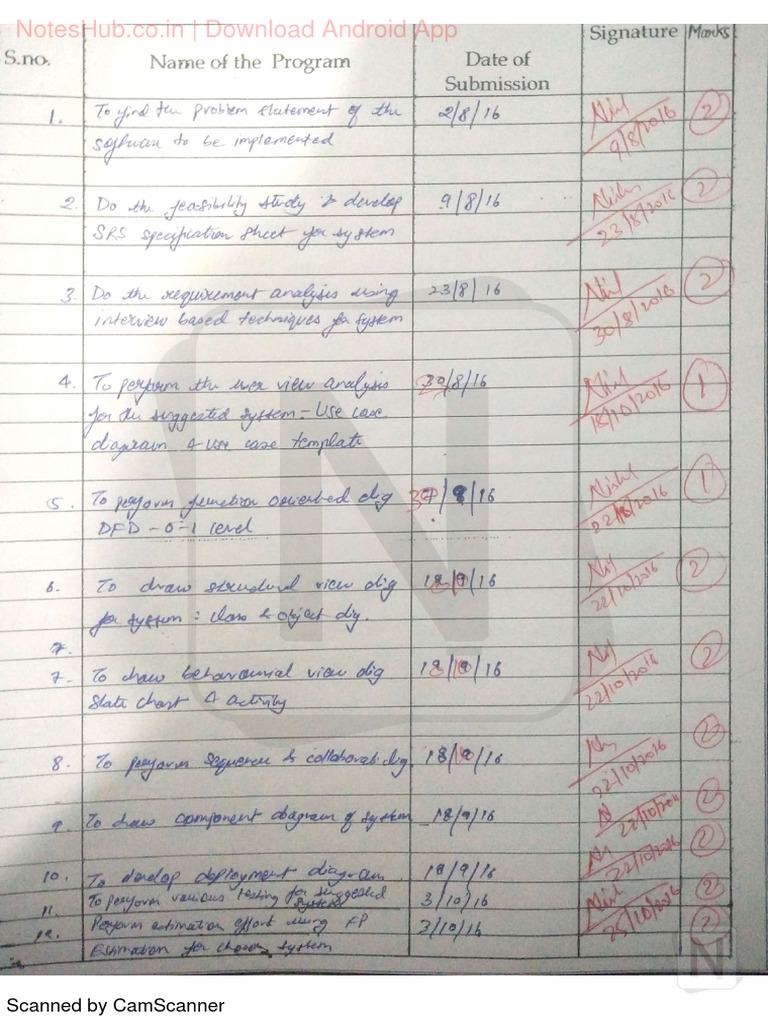 NotesHub.co.in | Download Android App
S.no. Name of the Program Date of Submission Signature Marks
1. To find the problem statement of the 2/8/16 2
software to be implemented 9/8/2016
2. Do the feasibility study & develop 9/8/16 2
SRS specification sheet for system 23/8/2016
3. Do the requirement analysis using 23/8/16 2
interview based techniques for system 30/8/2016
4. To perform the user view analysis 30/8/16 1
for the suggested system = Use case 18/10/2016
diagram & use case template
5. To perform function oriented dig /16 1
DFD - 0-1 level 2016
6. To draw structural view dig /16 2
for system : class & object dig. 22/10/2016
7.
7. To draw behavourial view dig /16 2
State chart & activity 22/10/2016
8. To perform sequence & collaborati dig 18/ /16 2
22/10/2016
9. To draw component diagram of system 18/9/16 2
22/10/201
10. To develop deployment diagram 18/9/16 2
22/10/2016
11. To perform various testing for suggested 3/10/16 2
system
12. Perform estimation effort using FP 3/10/16 2
Estimation for chosen system 25/10/2016
N
Scanned by CamScanner